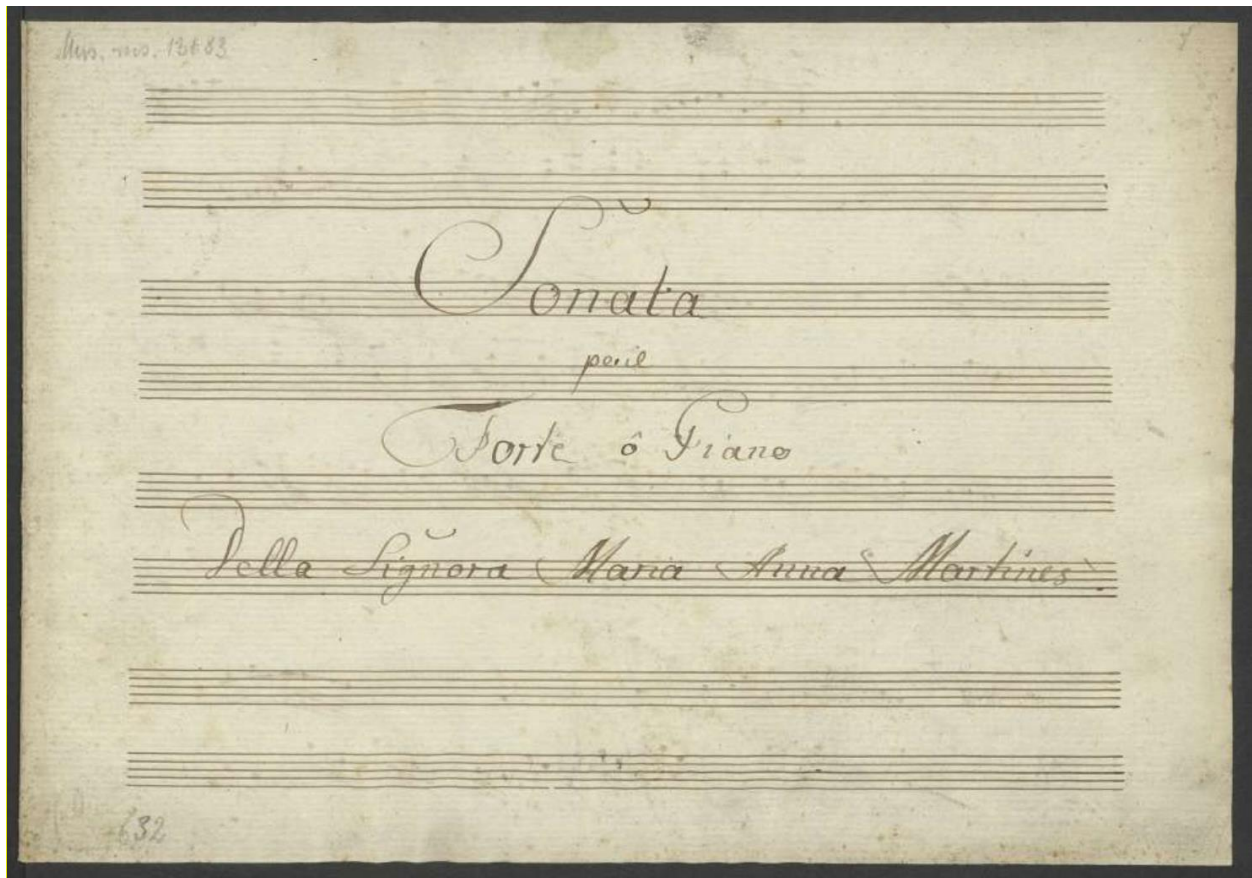 Mus. ms. 13683
Sonata
per il
Forte ô Piano
Della Signora Maria Anna Martines
632